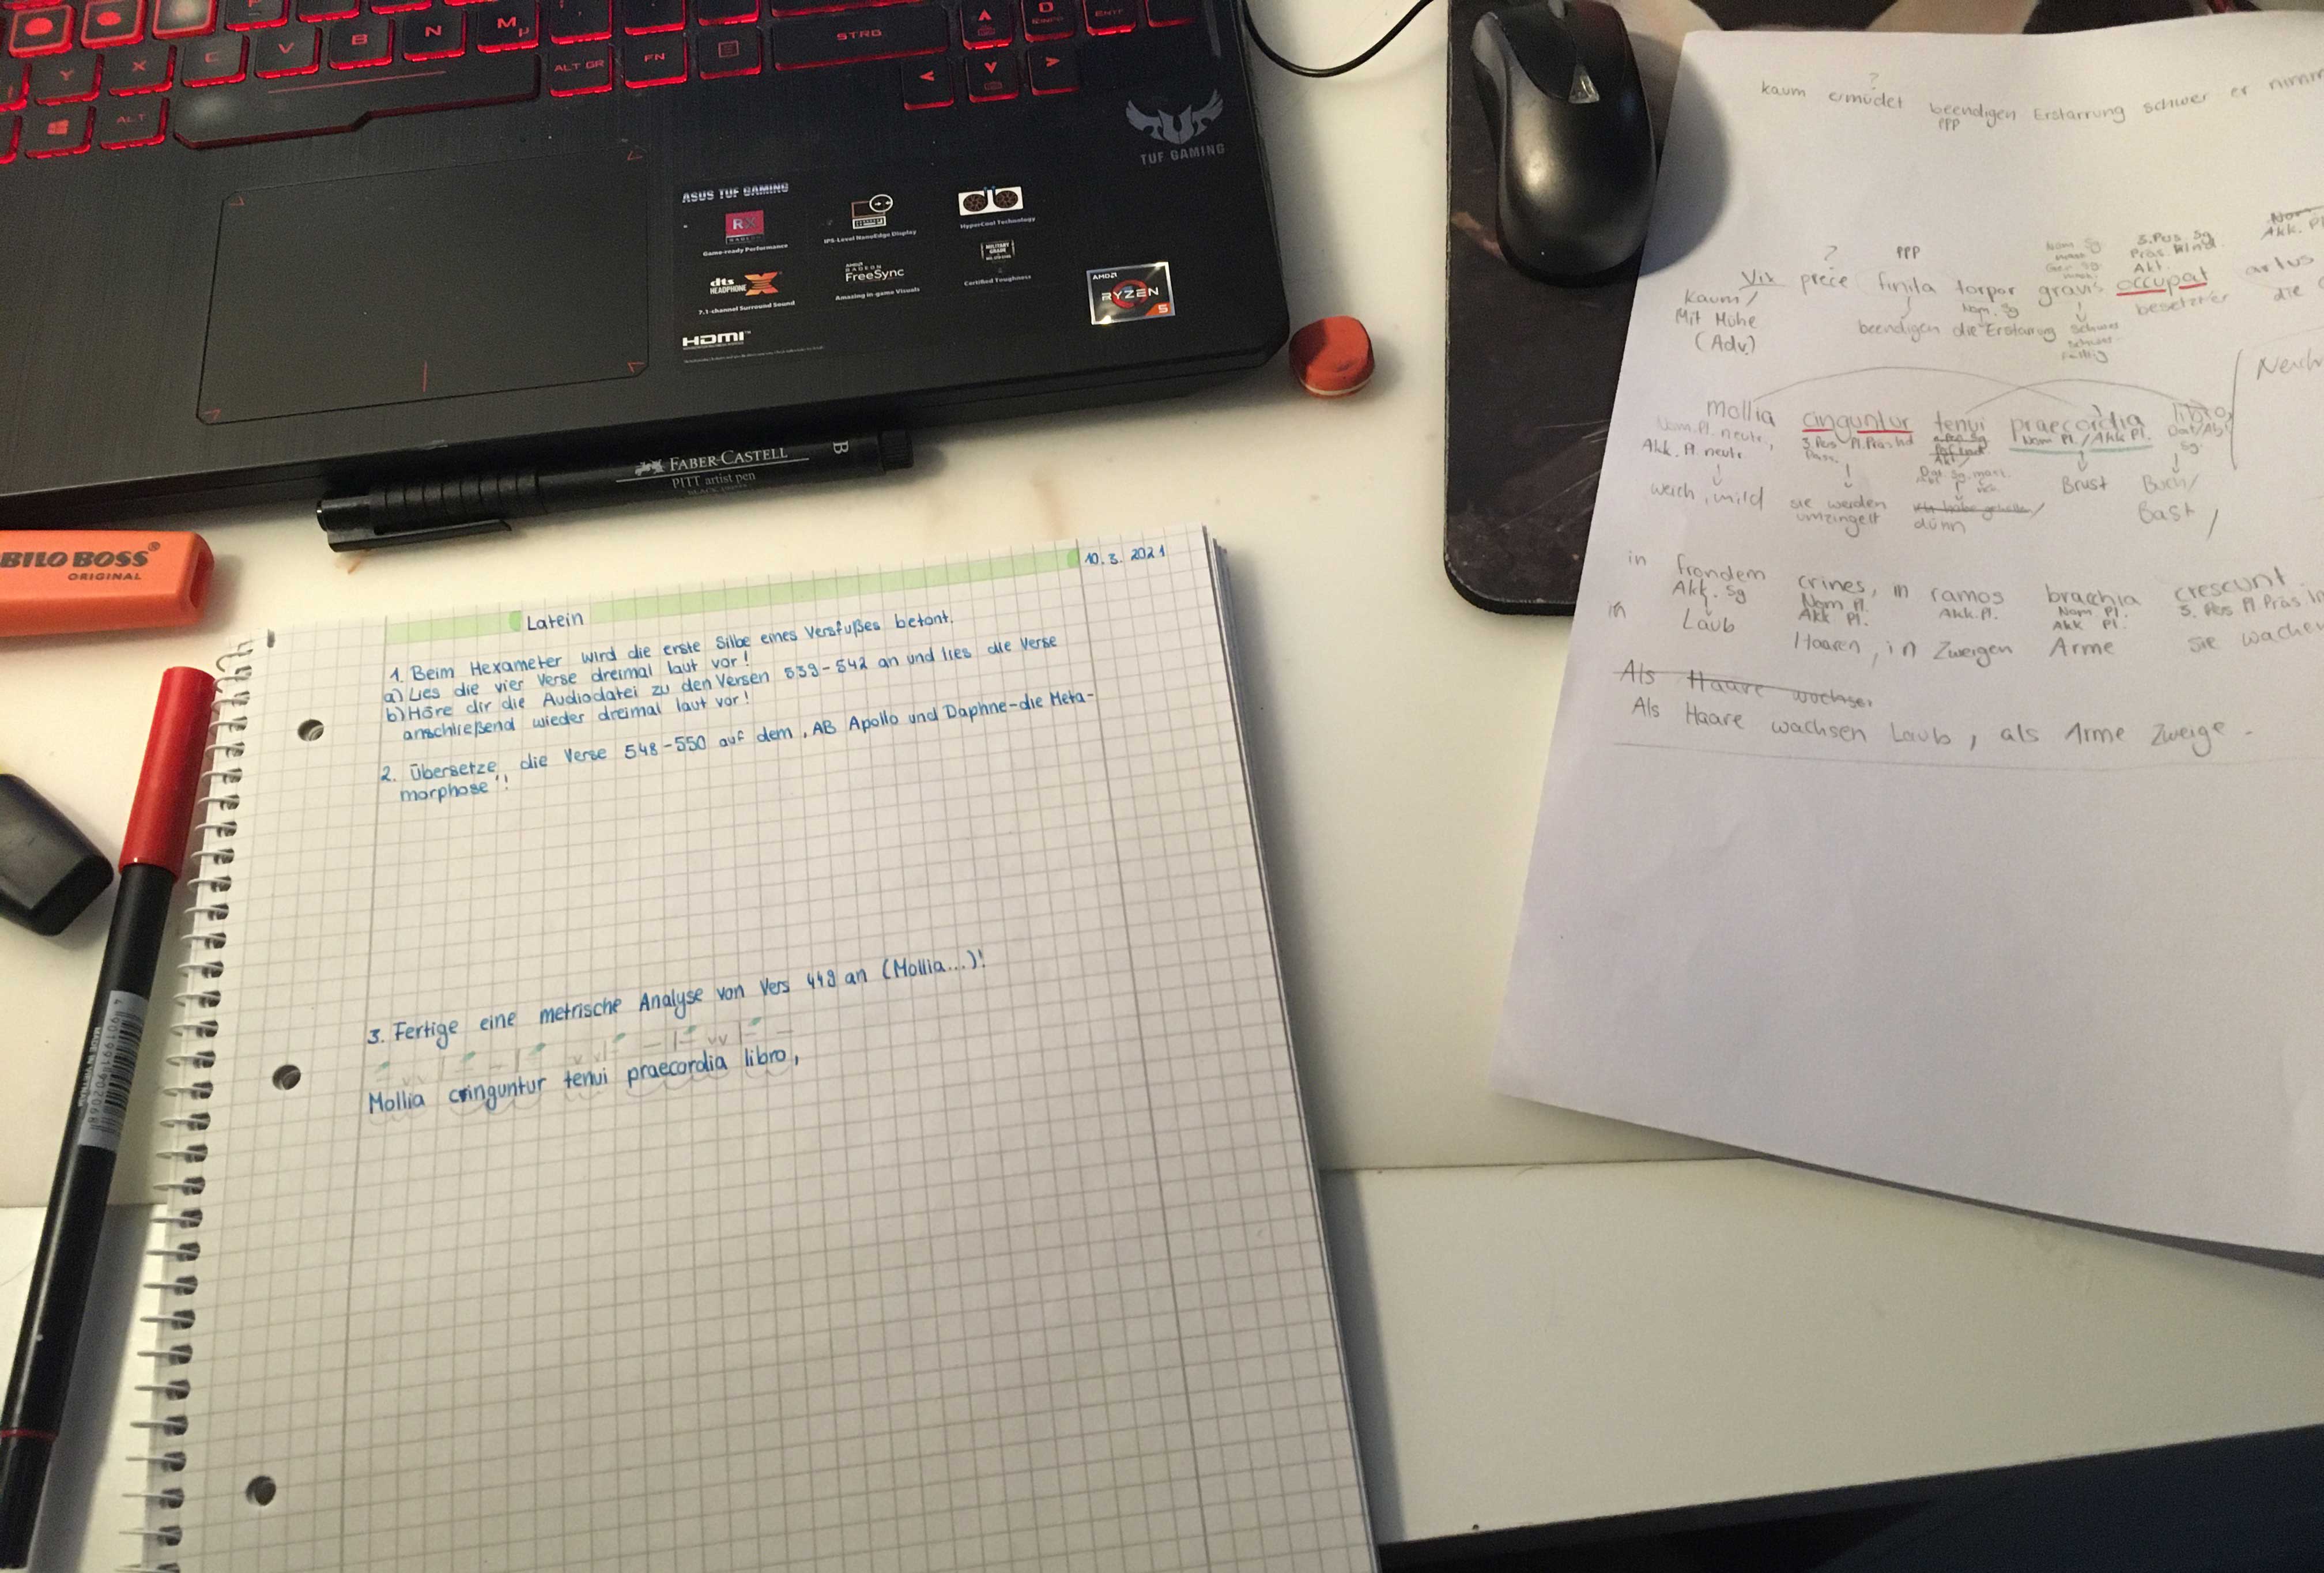 Y X C V B N M µ
ALT GR FN STRG ENTF
ALT
TUF GAMING
ASUS TUF GAMING
RX
RADEON
Game-ready Performance
IPS-Level NanoEdge Display
HyperCool Technology
dts
HEADPHONE:X
7.1-channel Surround Sound
AMD
RADEON
FreeSync
Amazing in-game Visuals
MILITARY
GRADE
Certified Toughness
HDMI™
AMD
RYZEN
5
FABER-CASTELL
PITT artist pen
B
BILO BOSS®
ORIGINAL
Latein
10.3.2021
1. Beim Hexameter wird die erste Silbe eines Versfußes betont.
a) Lies die vier Verse dreimal laut vor!
b) Höre dir die Audiodatei zu den Versen 539-542 an und lies die Verse
anschließend wieder dreimal laut vor!
2. Übersetze die Verse 548-550 auf dem ,AB Apollo und Daphne-die Meta-
morphose"!
3. Fertige eine metrische Analyse von Vers 449 an (Mollia...)!
Mollia cinguntur tenui praecordia libro,
?
kaum ermüdet beendigen Erstarrung schwer er nimm
PPP
? PPP Nom. Sg 3. Pos. Sg Nom
Präs. Ind. Akk. Pl
Akt.
Vix prece finita torpor gravis occupat artus
Kaum/ Nom. Sg
Mit Mühe beendigen die Erstarrung schwer besetzt er die
(Adv.) fällig
Nach
mollia cinguntur tenui praecordia libro,
Nom. Pl. neutr., 3. Pos Pl. Präs Ind Nom Pl. / Akk Pl. Dat/Abl
Akk. Pl. neutr Pass. Sg.
weich, mild sie werden dünn Brust Buch/
umzingelt Bast /
in frondem crines, in ramos bracchia crescunt.
Akk. Sg Nom Pl. Akk. Pl. Nom Pl. 3. Pos Pl Präs In
Akk Pl. Akk Pl.
in Laub Haaren, in Zweigen Arme sie wachen
Als Haare wachsen
Als Haare wachsen Laub, als Arme Zweige.